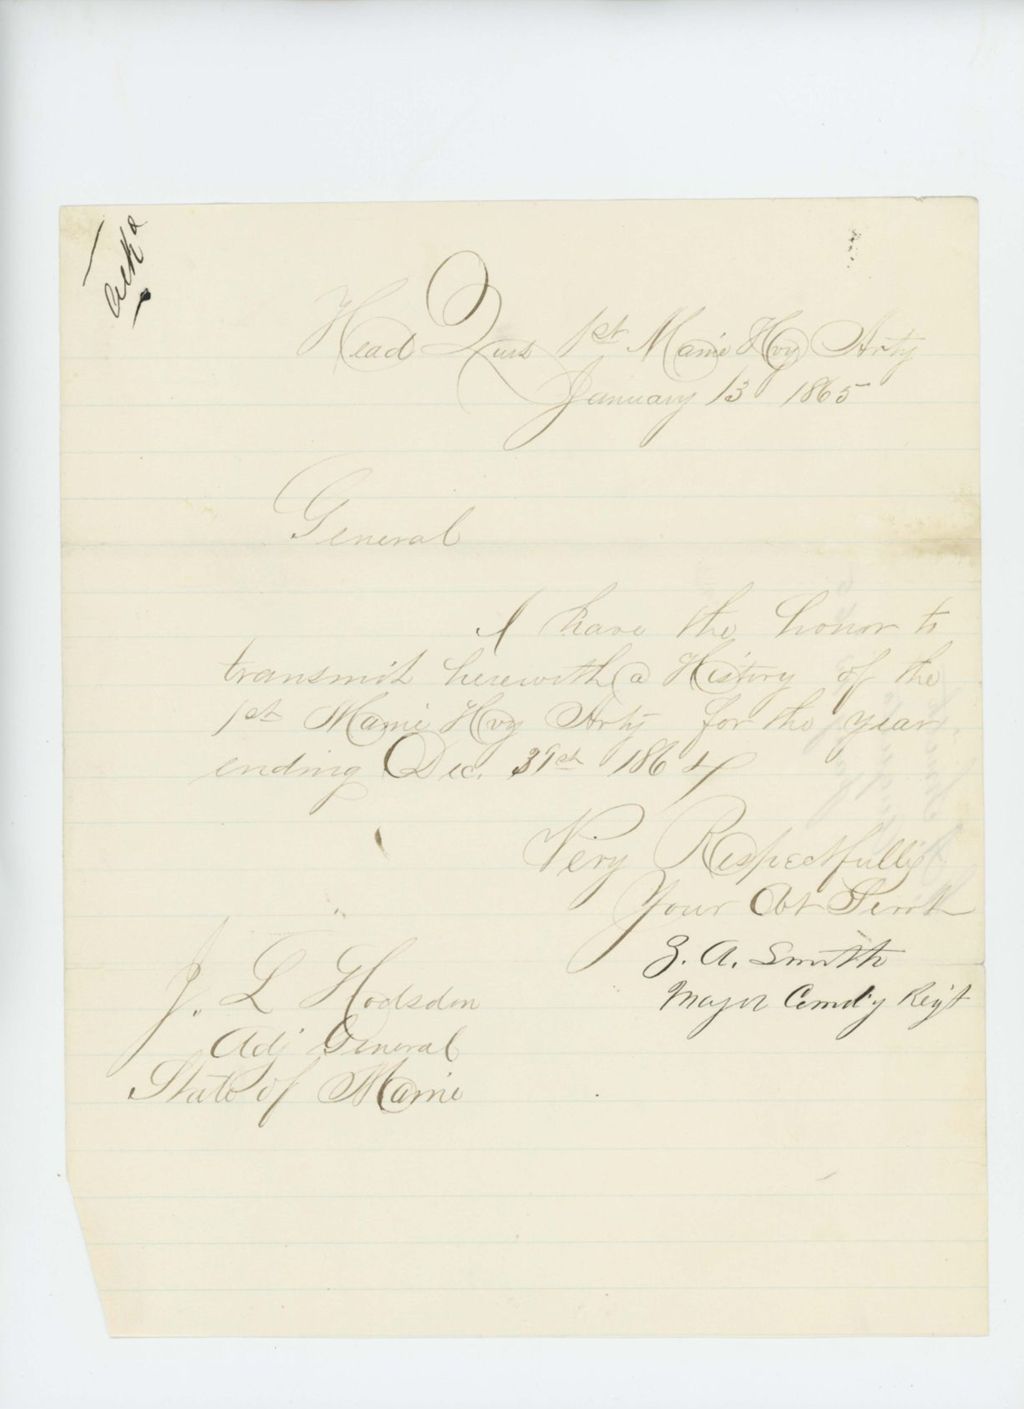 Ack'd
Head Qurs 1st Maine Hvy Arty
January 13 1865
General
I have the honor to
transmit herewith a History of the
1st Maine Hvy Arty for the year
ending Dec. 31st 1864
Very Respectfully
Your Obt Servt
Z. A. Smith
Major Comd'g Reg't
J. L Hodsdon
Adj General
State of Maine